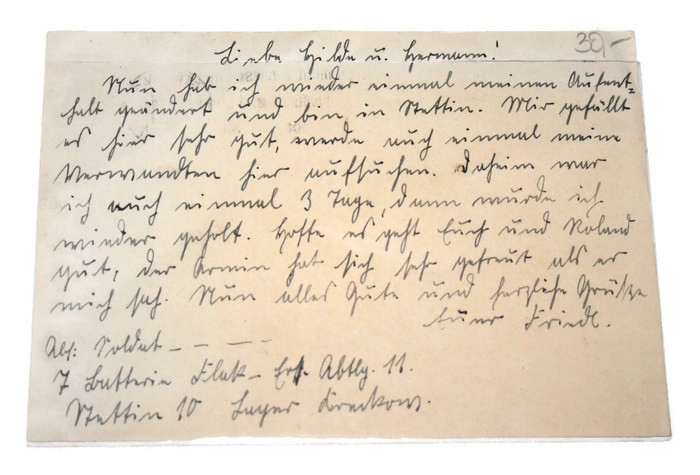 30,-
Liebe Hilde u. Hermann!
Nun hab ich wieder einmal meinen Aufent-
halt geändert und bin in Stettin. Mir gefällt
es hier sehr gut, werde auch einmal meine
Verwandten hier aufsuchen. Daheim war
ich auch einmal 3 Tage, dann wurde ich
wieder geholt. Hoffe es geht Euch und Roland
gut, der Armin hat sich sehr gefreut als er
mich sah. Nun alles Gute und herzliche Grüße
Euer Friedl.
Abs: Soldat – – – –
7 Batterie Flak-Ers. Abtlg. 11.
Stettin 10 Lager Kreckow.